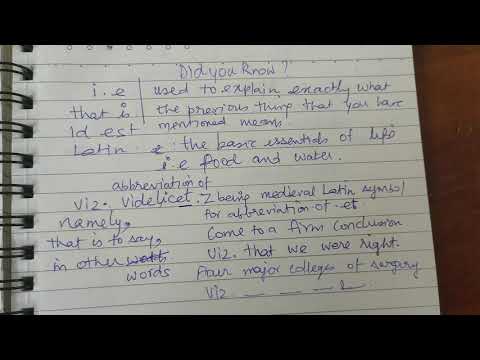 Did you know?
i.e used to explain exactly what
that is the previous thing that you have
Id est mentioned means.
Latin the basic essentials of life
i.e food and water.
abbreviation of
viz. Videlicet. Z being medieval Latin symbol
namely, for abbreviation of et
that is to say, Come to a firm conclusion
in other Viz. that we were right.
words Four major colleges of surgery
Viz. — — — —